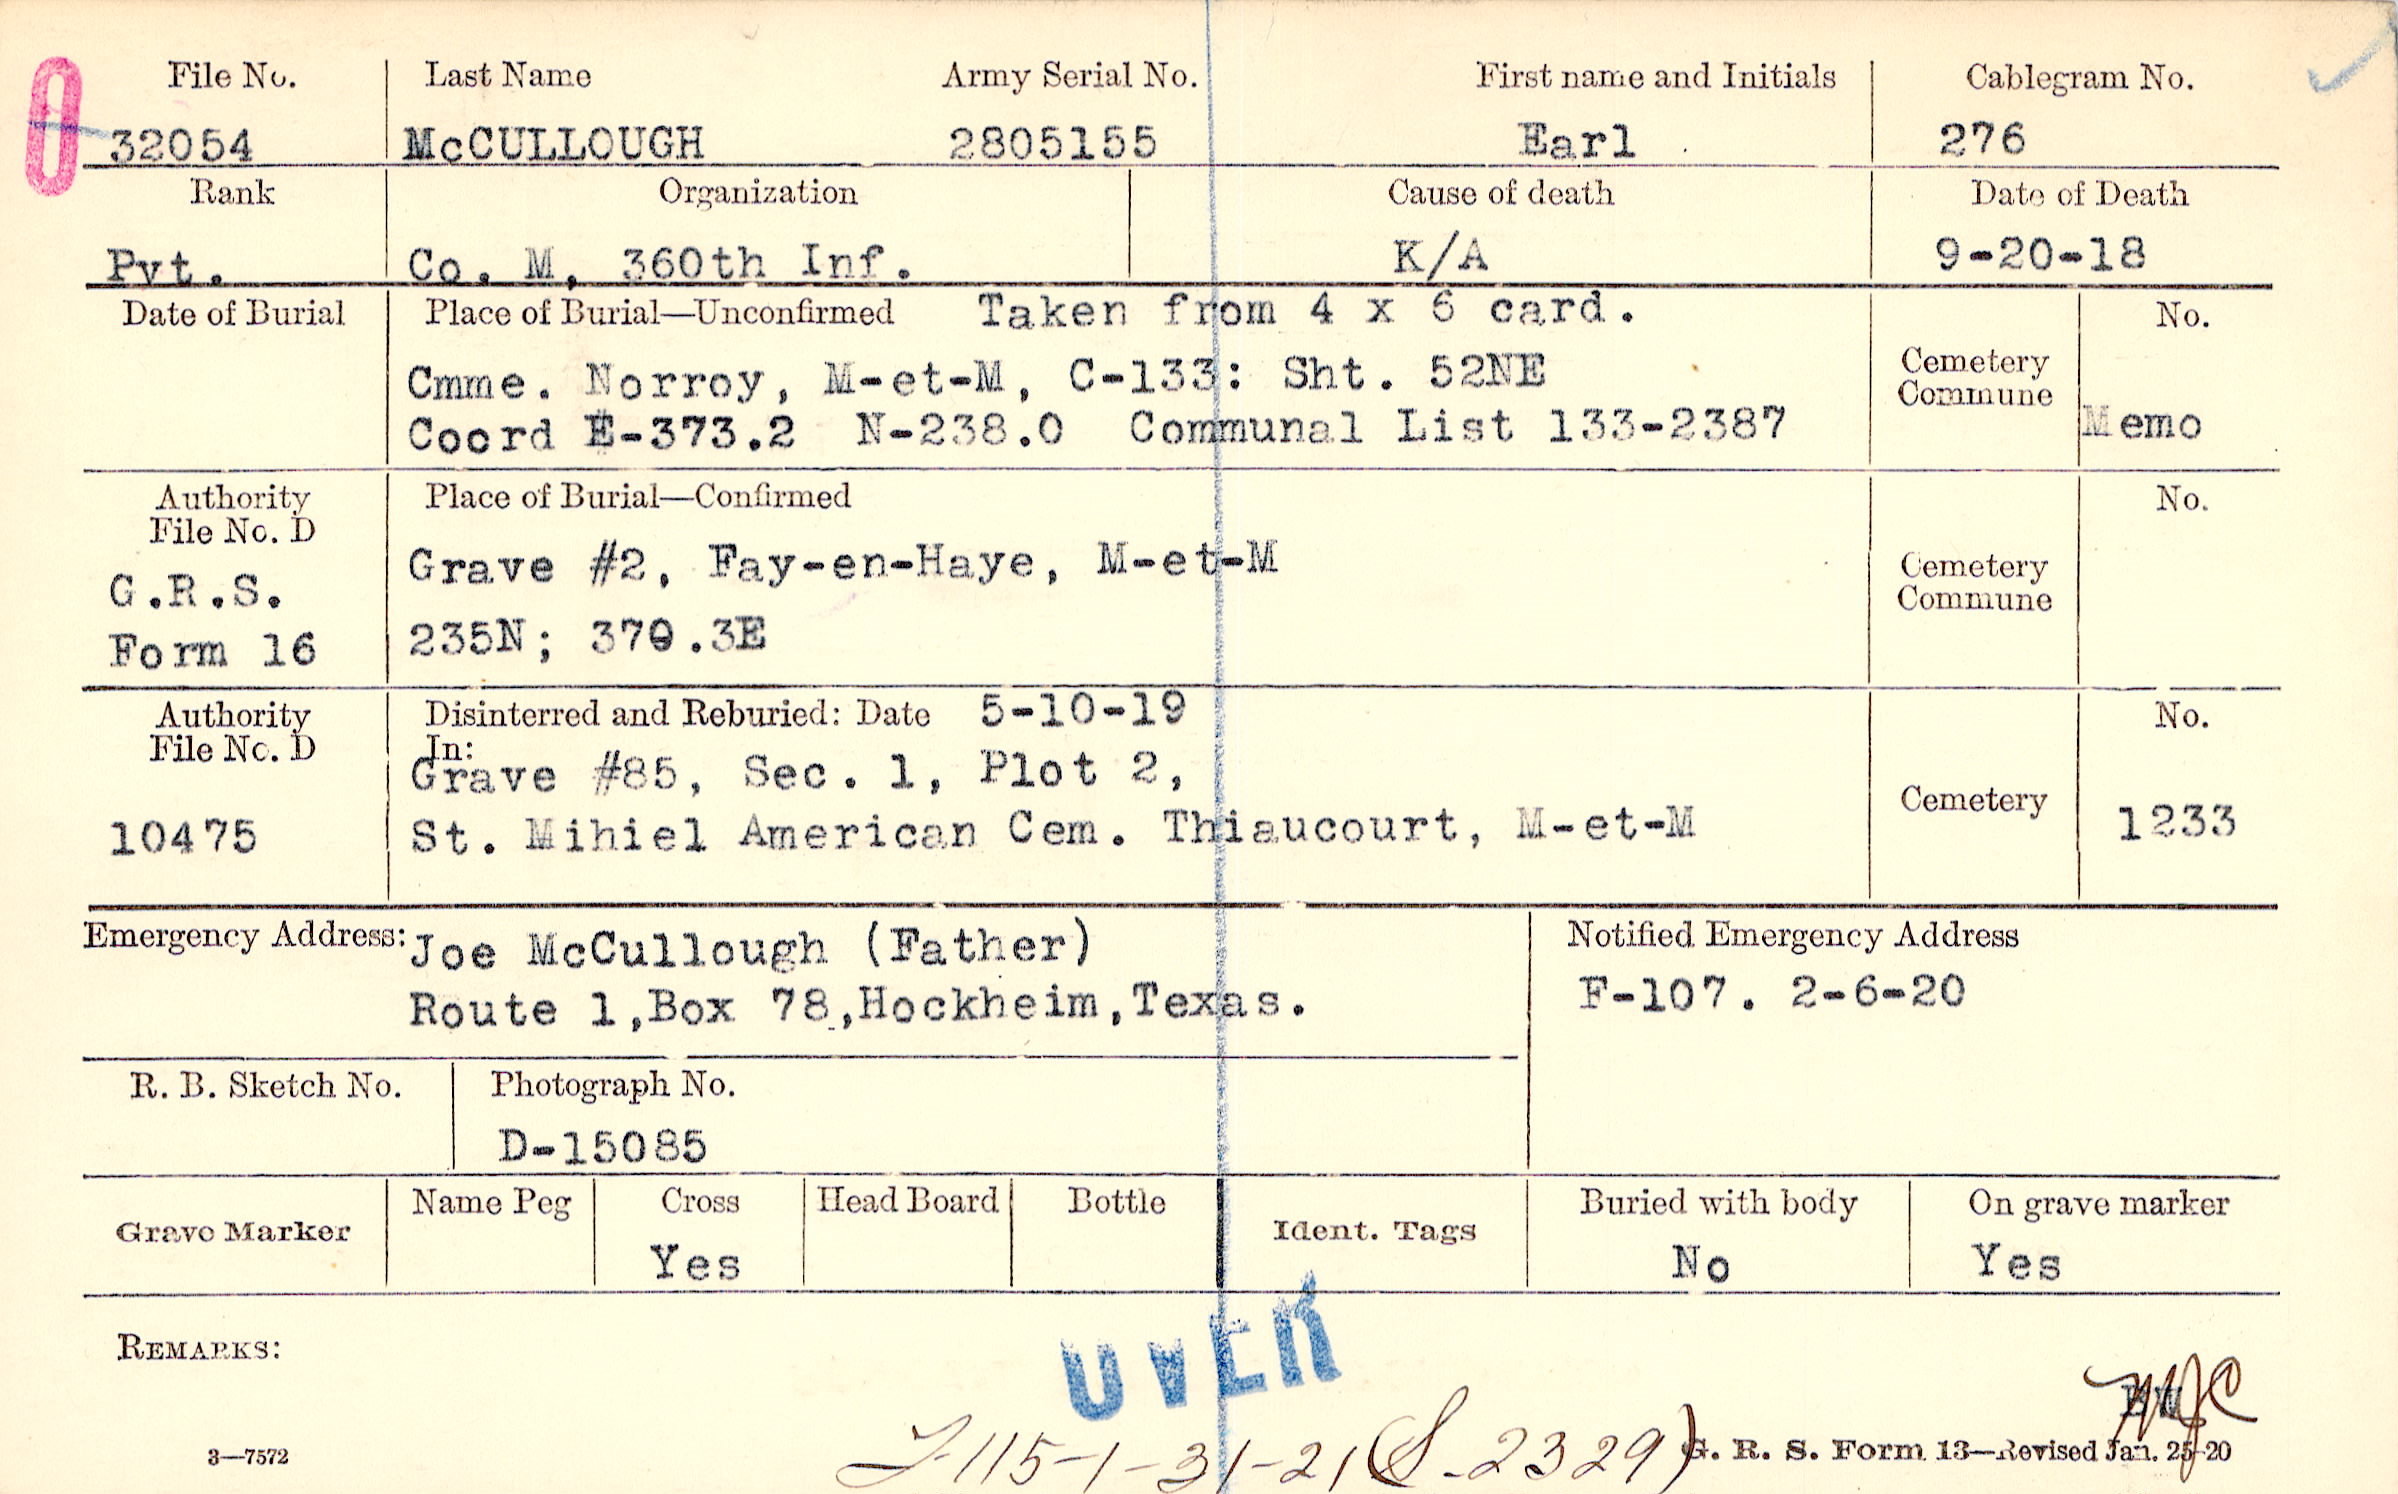 File No. Last Name Army Serial No. First name and Initials Cablegram No.
32054 McCULLOUGH 2805155 Earl 276
Rank Organization Cause of death Date of Death
Pvt. Co. M, 360th Inf. K/A 9-20-18
Date of Burial Place of Burial—Unconfirmed Taken from 4 x 6 card. No.
Cmme. Norroy, M-et-M, C-133: Sht. 52NE Cemetery
Commune
Coord E-373.2 N-238.0 Communal List 133-2387 Memo
Authority Place of Burial—Confirmed No.
File No. D
Grave #2, Fay-en-Haye, M-et-M Cemetery
G.R.S. Commune
Form 16 235N; 370.3E
Authority Disinterred and Reburied: Date 5-10-19 No.
File No. D In:
Grave #85, Sec. 1, Plot 2, Cemetery
10475 St. Mihiel American Cem. Thiaucourt, M-et-M 1233
Emergency Address: Joe McCullough (Father) Notified Emergency Address
Route 1,Box 78,Hockheim,Texas. F-107. 2-6-20
R. B. Sketch No. Photograph No.
D-15085
Grave Marker Name Peg Cross Head Board Bottle Ident. Tags Buried with body On grave marker
Yes No Yes
OVER
REMARKS:
115-1-31-21 (S-2329)
3—7572 G. R. S. Form 13—Revised Jan. 25-20